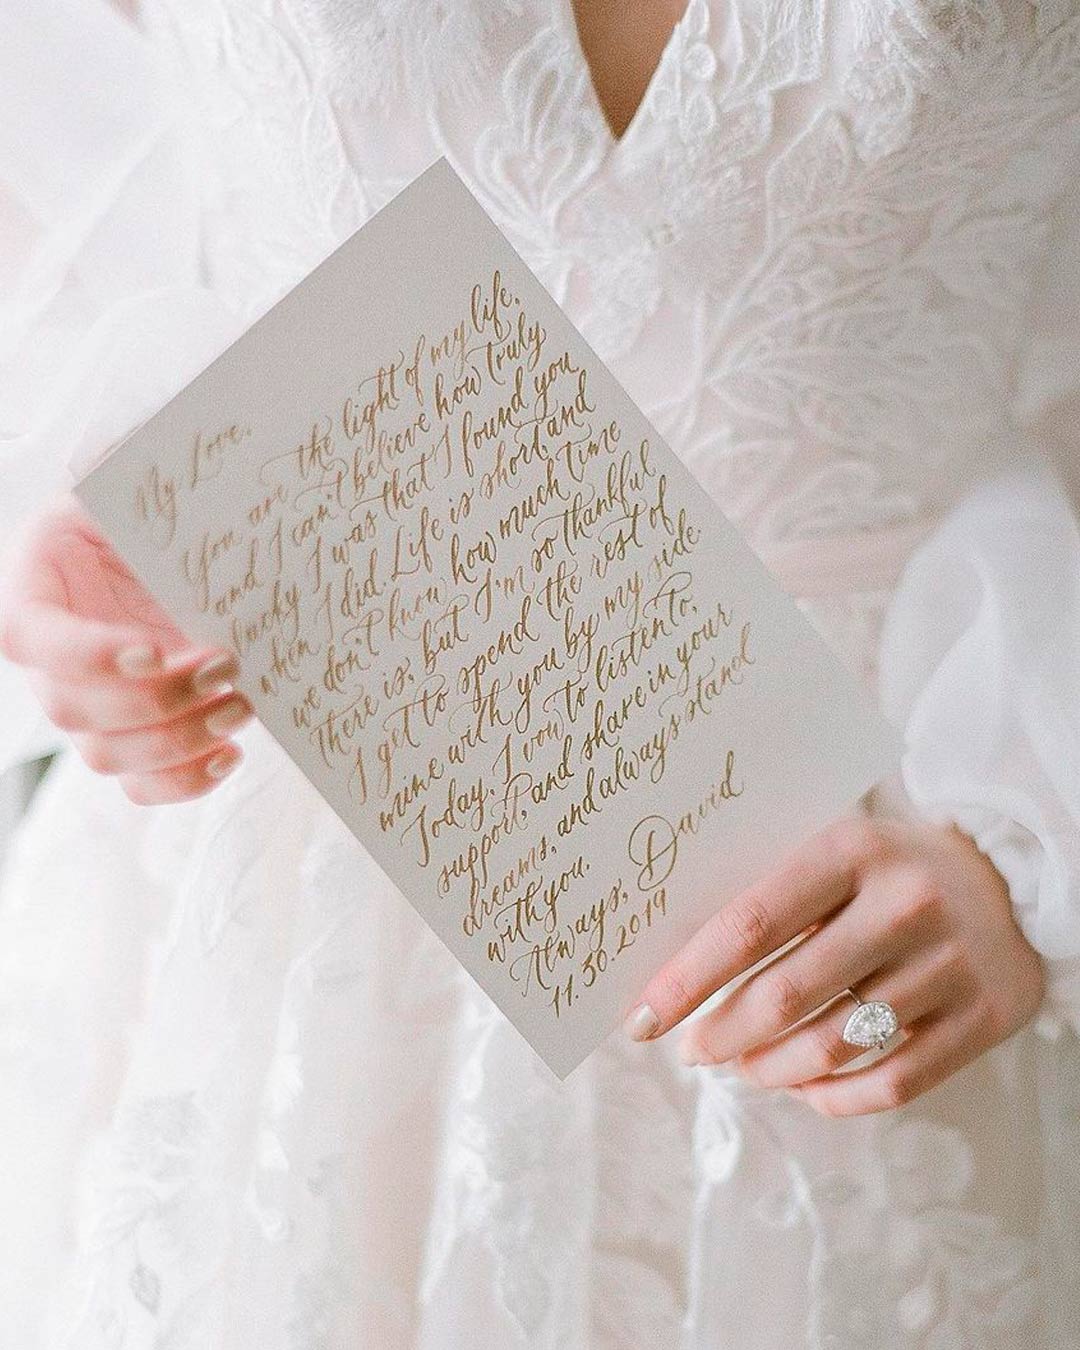 My Love,
You are the light of my life,
and I can't believe how truly
lucky I was that I found you
when I did. Life is short, and
we don't know how much time
there is, but I'm so thankful
I get to spend the rest of
mine with you by my side.
Today, I vow to listen to,
support, and share in your
dreams, and always stand
with you.
Always, David
11.30.2019